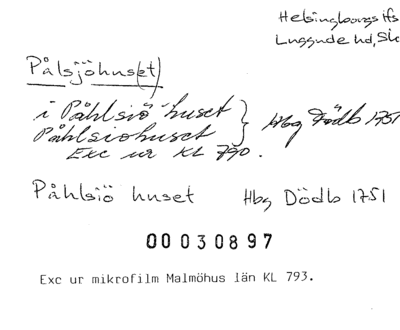 Helsingborgs lfs
Luggude hd, Sk
Pålsjöhus(et)
i Påhlsiö huset } Hbg Dödb 1751
Påhlsiohuset
Exc ur KL 790.
Påhlsiö huset Hbg Dödb 1751
00030897
Exc ur mikrofilm Malmöhus län KL 793.